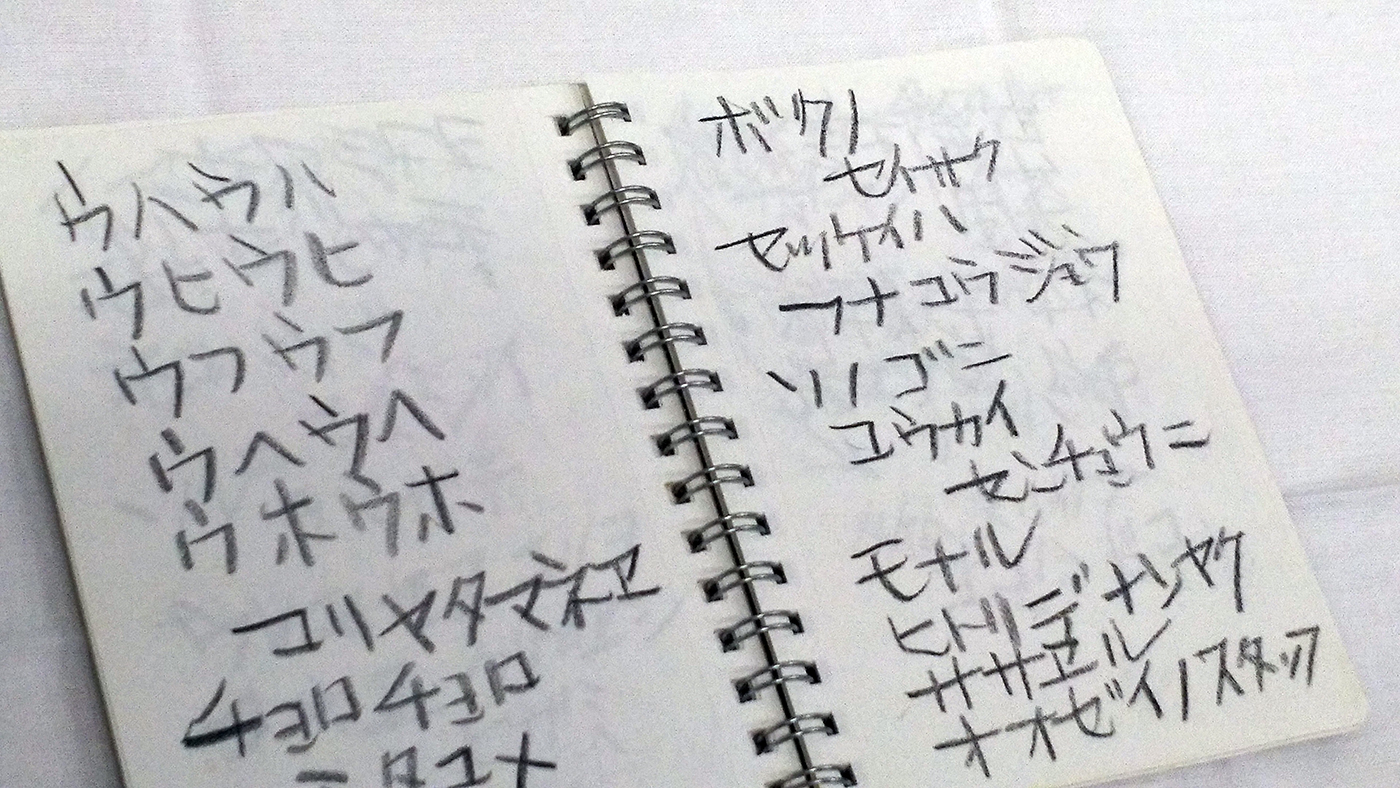 ウハウハ
ウヒウヒ
ウフウフ
ウヘウヘ
ウホウホ
コリャタマネヱ
チョロチョロ
ボクノ
セイサク
セッケイハ
フナコウジョウ
ソノゴニ
コウカイ
センチョウニ
モナル
ヒトリデナンヤク
ササヱル
オオゼイノスタッフ